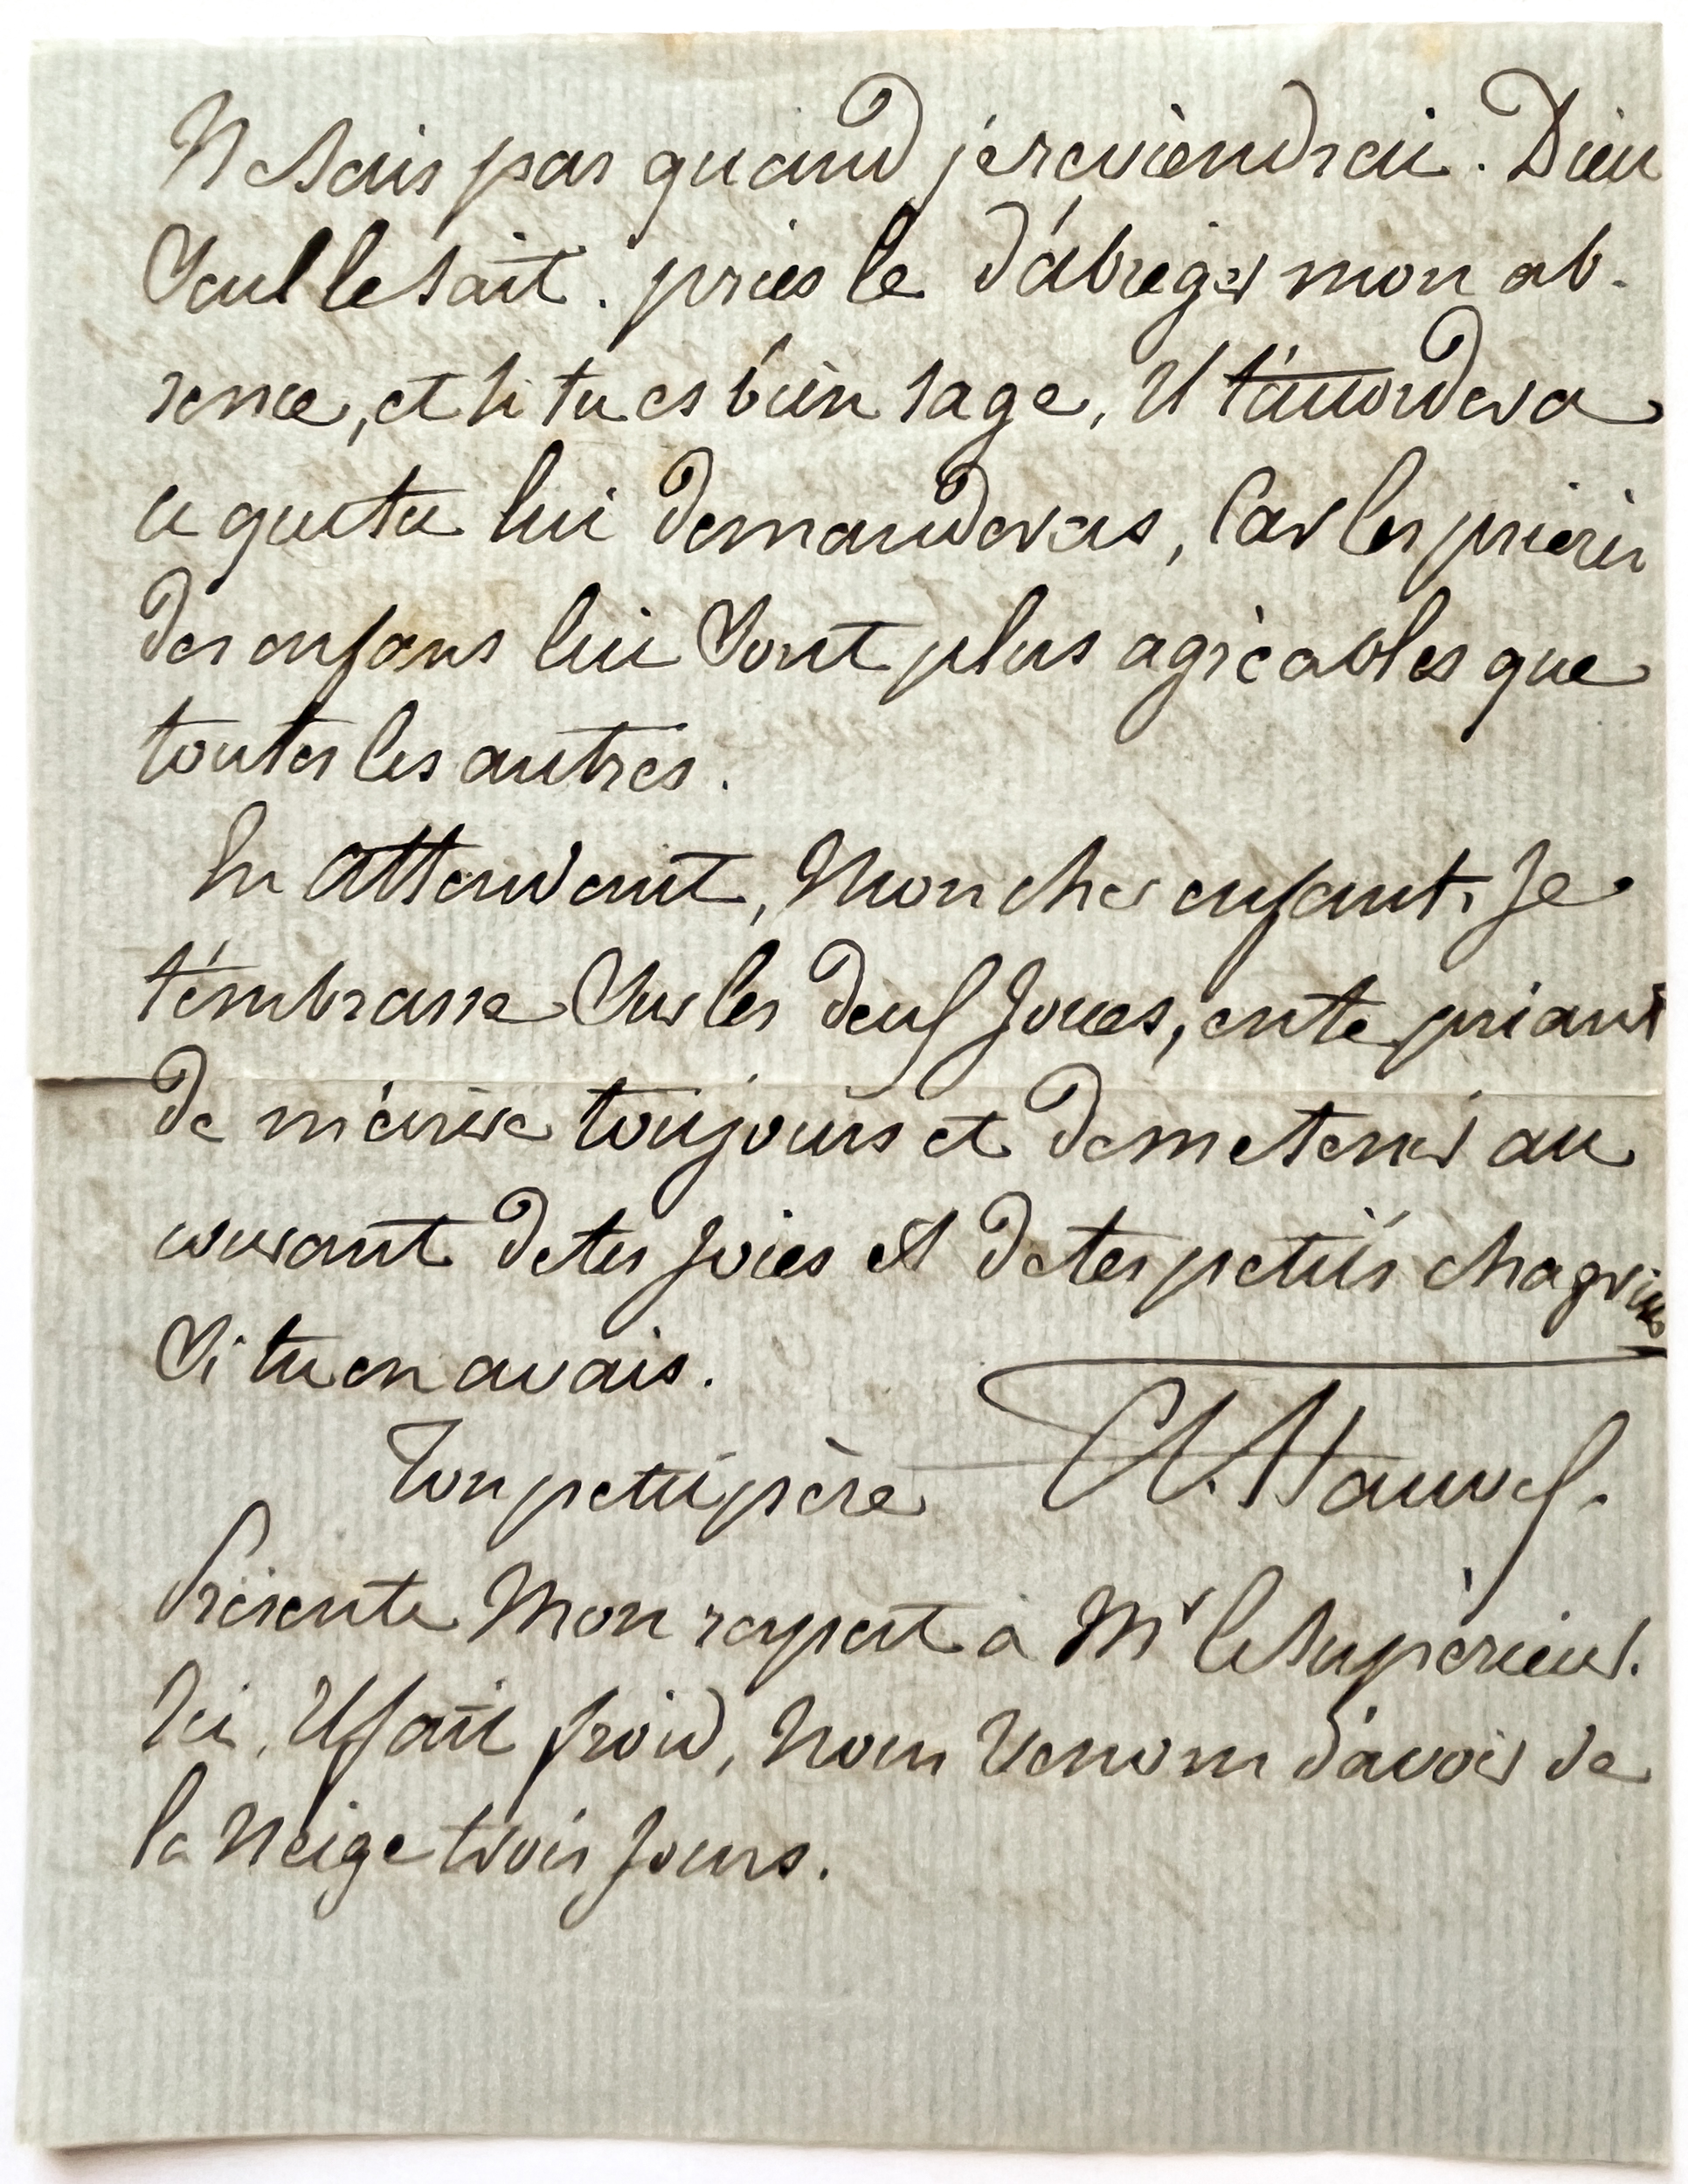 Ne sais pas quand je reviendrai. Dieu
Seul le sait. pries le d'abréger mon ab-
sence, et si tu es bien sage, Il t'accordera
ce que tu lui demanderas, Car les prières
des enfans lui Sont plus agréables que
toutes les autres.
En attendant, Mon cher enfant, Je
t'embrasse Sur les deux Joues, en te priant
de m'écrire toujours et de me tenir au
courant de tes Joies et de tes petits chagrins
Si tu en avais.
Ton petit père
Présente Mon respect à Mr le Supérieur.
Ici, Il fait froid, Nous Venons d'avoir de
la Neige trois Jours.